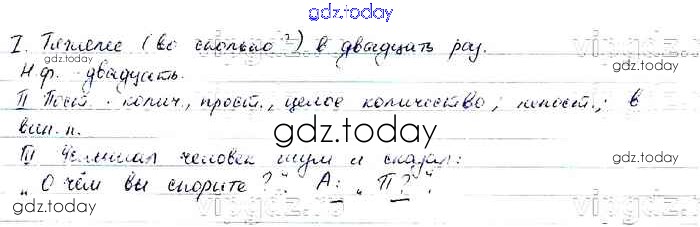 gdz.today
I. Тяжелее (во сколько?) в двадцать раз.
Н.ф. двадцать.
II Пост.: колич., прост., целое количество; непост.: в
вин. п.
gdz.today
III Услышал человек шум и сказал:
„О чём вы спорите?“ А: „П?“.
gdz.today
gdz.today
gdz.today
gdz.today